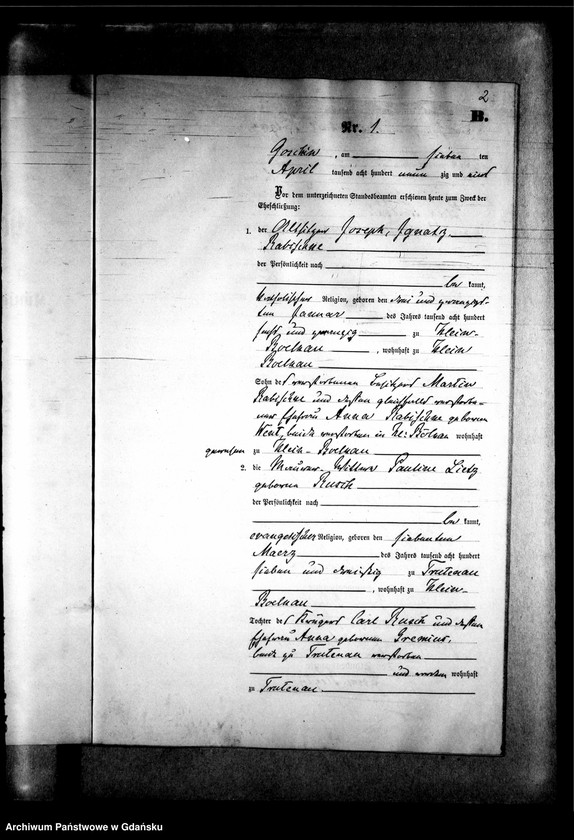 2
B.
Nr. 1.
Goschin, am sieben ten
April tausend acht hundert neun zig und eins
Vor dem unterzeichneten Standesbeamten erschienen heute zum Zweck der
Eheschließung:
1. der Altsitzer Joseph, Ignatz
Rabischke
der Persönlichkeit nach
be kannt,
katholischer Religion, geboren den drei und zwanzigs-
ten Januar des Jahres tausend acht hundert
fünf und zwanzig zu Klein-
Boelkau, wohnhaft zu Klein
Boelkau
Sohn des verstorbenen Besitzers Martin
Rabischke und dessen gleichfalls verstorbe-
ner Ehefrau Anna Rabischke geborene
beide verstorben in Kl: Bölkau wohnhaft
gewesen zu Klein-Boelkau
2. die Maurer-Wittwe Pauline Lietz
geborene Rusch
der Persönlichkeit nach
be kannt,
evangelischer Religion, geboren den siebenten
Maerz des Jahres tausend acht hundert
sieben und dreißig zu Trutenau
, wohnhaft zu Klein-
Boelkau
Tochter des Krügers Carl Rusch und dessen
Ehefrau Anna geborenen
beide zu Trutenau verstorben
und wohnhaft
zu Trutenau.
Archiwum Państwowe w Gdańsku